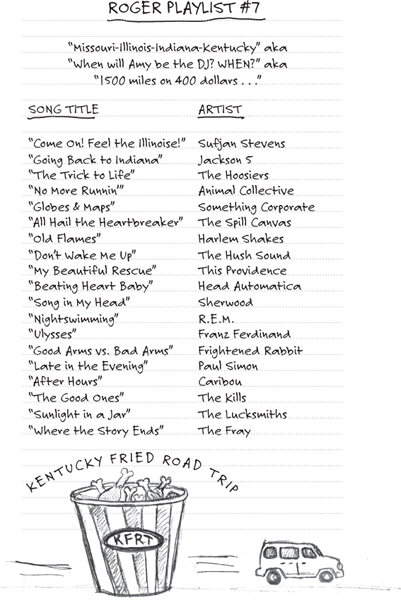 ROGER PLAYLIST #7
"Missouri-Illinois-Indiana-Kentucky" aka
"When will Amy be the DJ? WHEN?" aka
"1500 miles on 400 dollars . . ."
SONG TITLE ARTIST
"Come On! Feel the Illinoise!" Sufjan Stevens
"Going Back to Indiana" Jackson 5
"The Trick to Life" The Hoosiers
"No More Runnin'" Animal Collective
"Globes & Maps" Something Corporate
"All Hail the Heartbreaker" The Spill Canvas
"Old Flames" Harlem Shakes
"Don't Wake Me Up" The Hush Sound
"My Beautiful Rescue" This Providence
"Beating Heart Baby" Head Automatica
"Song in My Head" Sherwood
"Nightswimming" R.E.M.
"Ulysses" Franz Ferdinand
"Good Arms vs. Bad Arms" Frightened Rabbit
"Late in the Evening" Paul Simon
"After Hours" Caribou
"The Good Ones" The Kills
"Sunlight in a Jar" The Lucksmiths
"Where the Story Ends" The Fray
KENTUCKY FRIED ROAD TRIP
KFRT